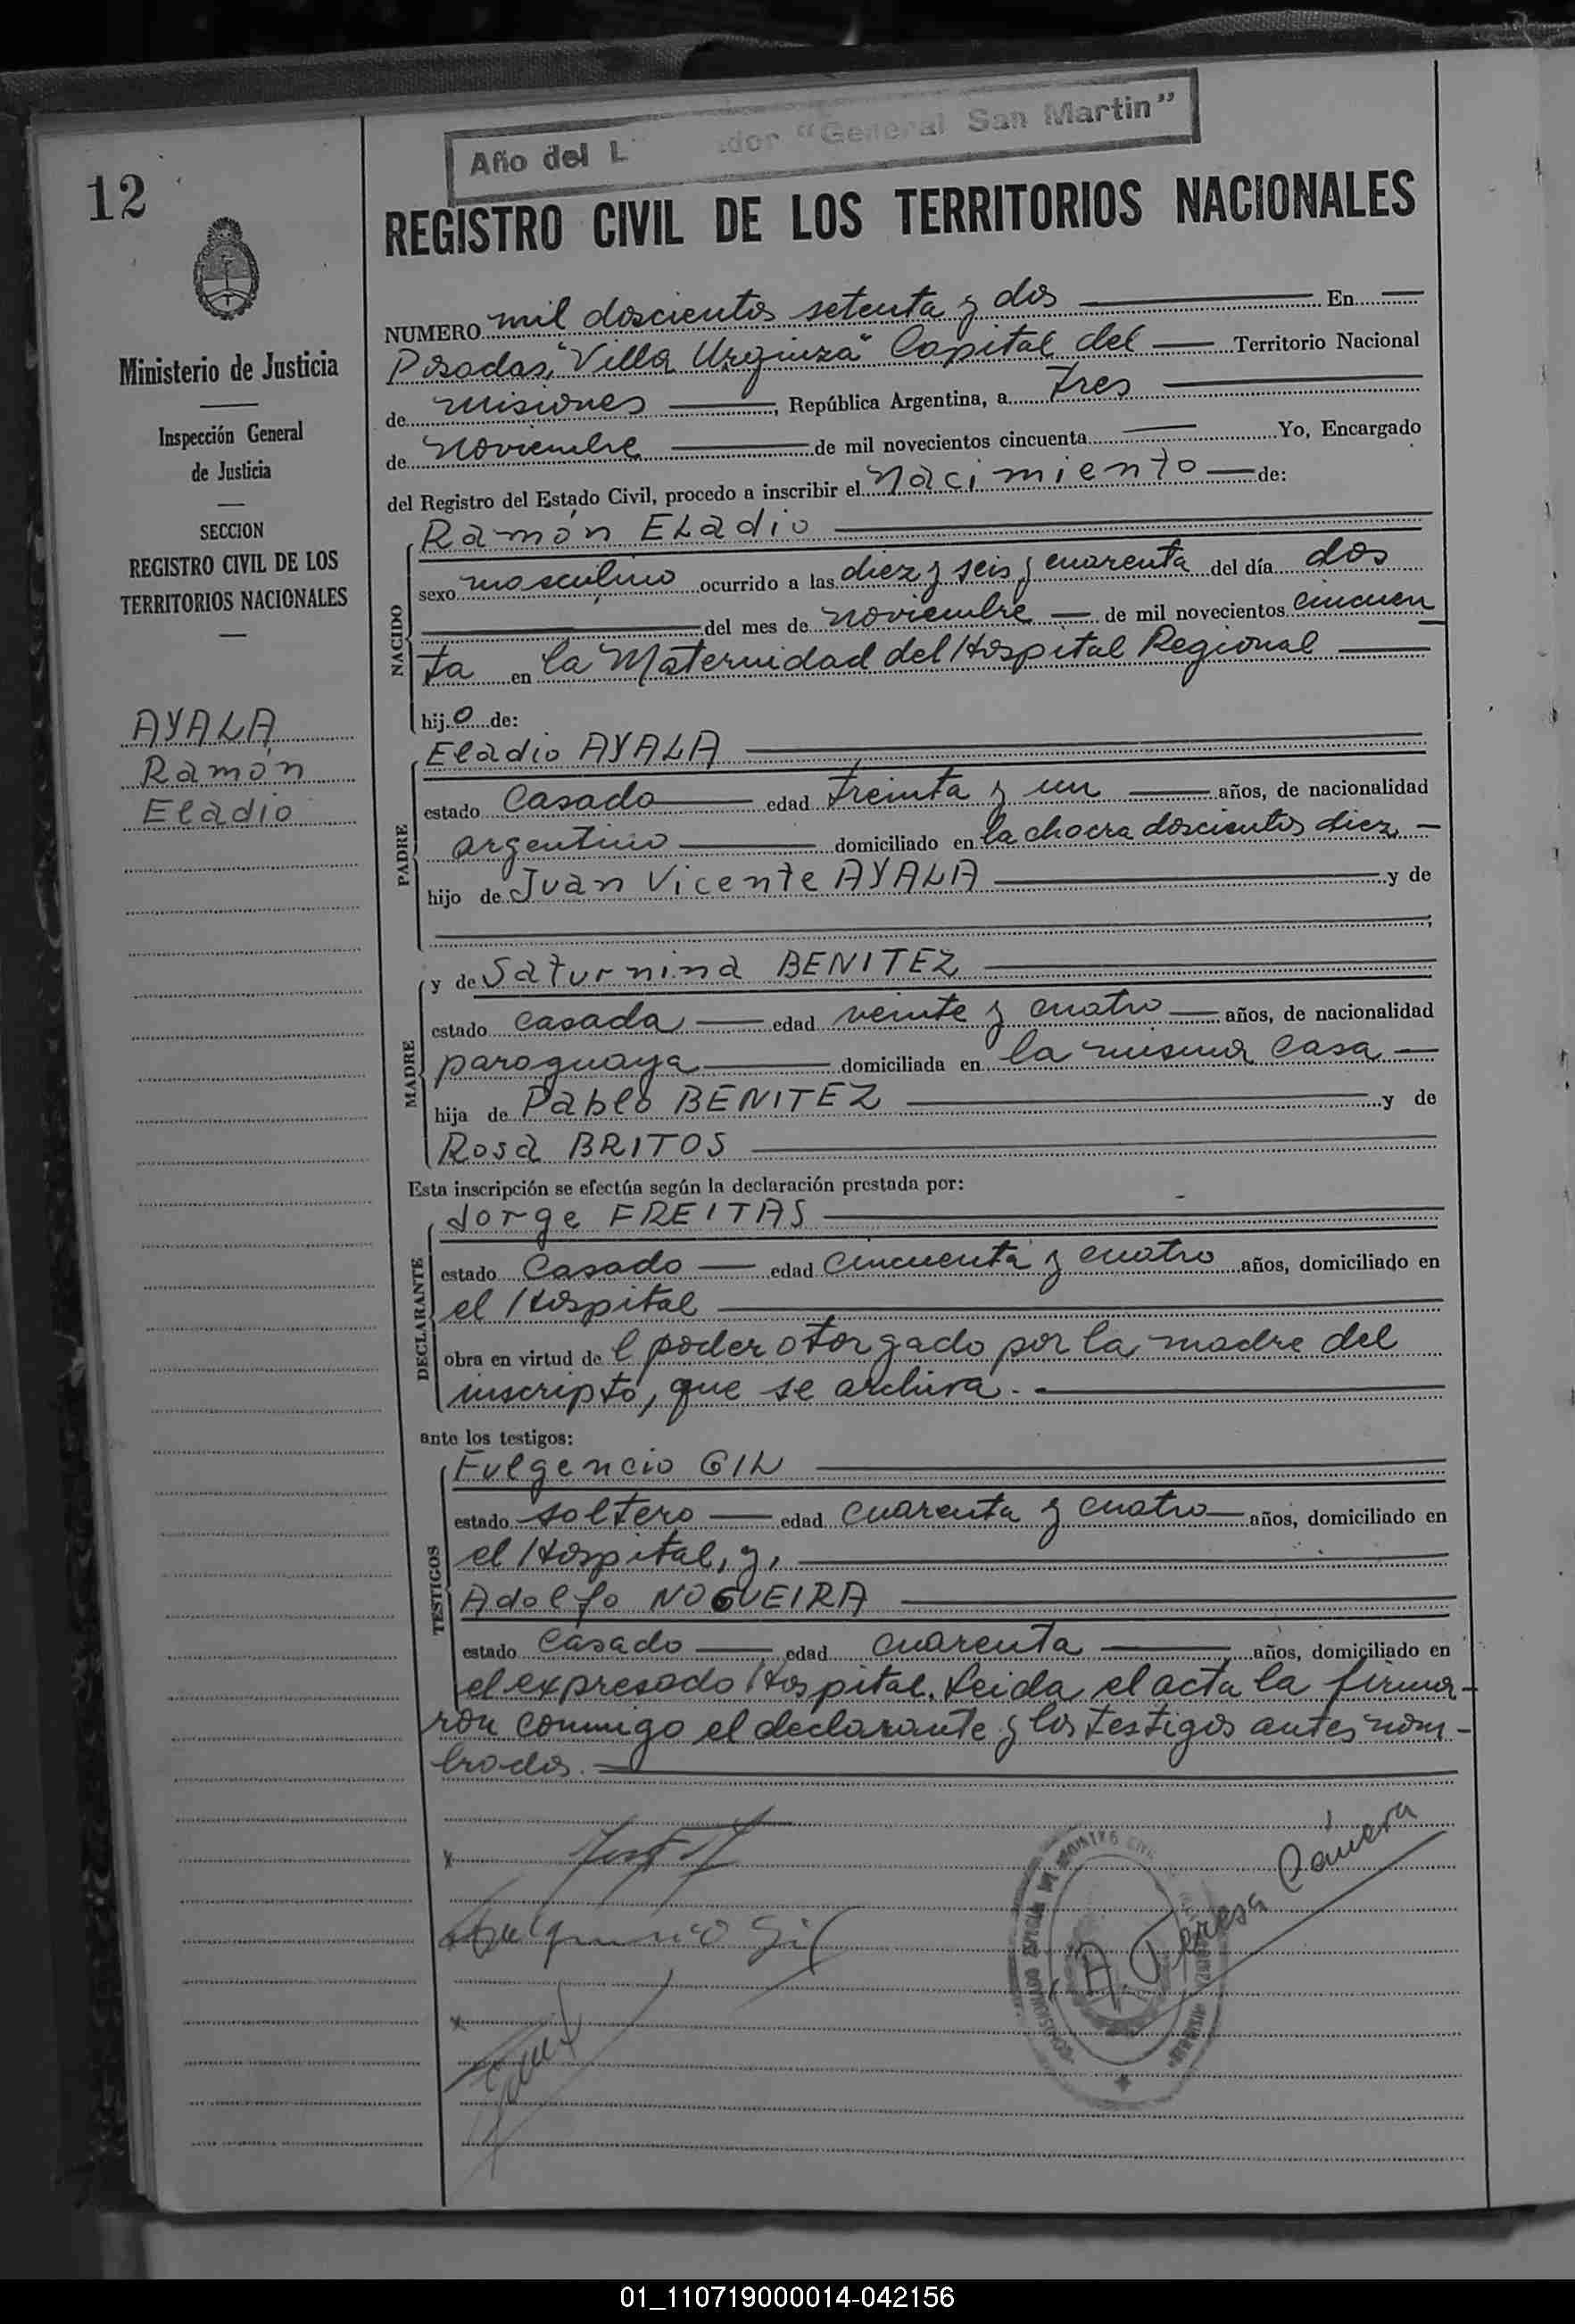 Año del L dor "General San Martin"
12
REGISTRO CIVIL DE LOS TERRITORIOS NACIONALES
Ministerio de Justicia
Inspección General
de Justicia
SECCION
REGISTRO CIVIL DE LOS
TERRITORIOS NACIONALES
AYALA
Ramón
Eladio
NUMERO mil doscientos setenta y dos En
Posadas, "Villa Urquiza" Capital del Territorio Nacional
de misiones, República Argentina, a tres
de noviembre de mil novecientos cincuenta Yo, Encargado
del Registro del Estado Civil, procedo a inscribir el nacimiento de:
NACIDO
Ramón Eladio
sexo masculino ocurrido a las diez y seis y cuarenta del día dos
del mes de noviembre de mil novecientos cincuen
ta en la Maternidad del Hospital Regional
hijo de:
PADRE
Eladio AYALA
estado casado edad treinta y un años, de nacionalidad
argentino domiciliado en la chacra doscientos diez
hijo de Juan Vicente AYALA y de
;
MADRE
y de Saturnina BENITEZ
estado casada edad veinte y cuatro años, de nacionalidad
paraguaya domiciliada en la misma casa
hija de Pablo BENITEZ y de
Rosa BRITOS
Esta inscripción se efectúa según la declaración prestada por:
DECLARANTE
Jorge FREITAS
estado casado edad cincuenta y cuatro años, domiciliado en
el Hospital
obra en virtud de l poder otorgado por la madre del
inscripto, que se archiva.
ante los testigos:
TESTIGOS
Fulgencio GIL
estado soltero edad cuarenta y cuatro años, domiciliado en
el Hospital, y,
Adolfo NOGUEIRA
estado casado edad cuarenta años, domiciliado en
el expresado Hospital. Leida el acta la firma-
ron conmigo el declarante y los testigos antes nom-
brados.
x
Fulgencio Gil
A. Teresa Cámera
x
01_110719000014-042156